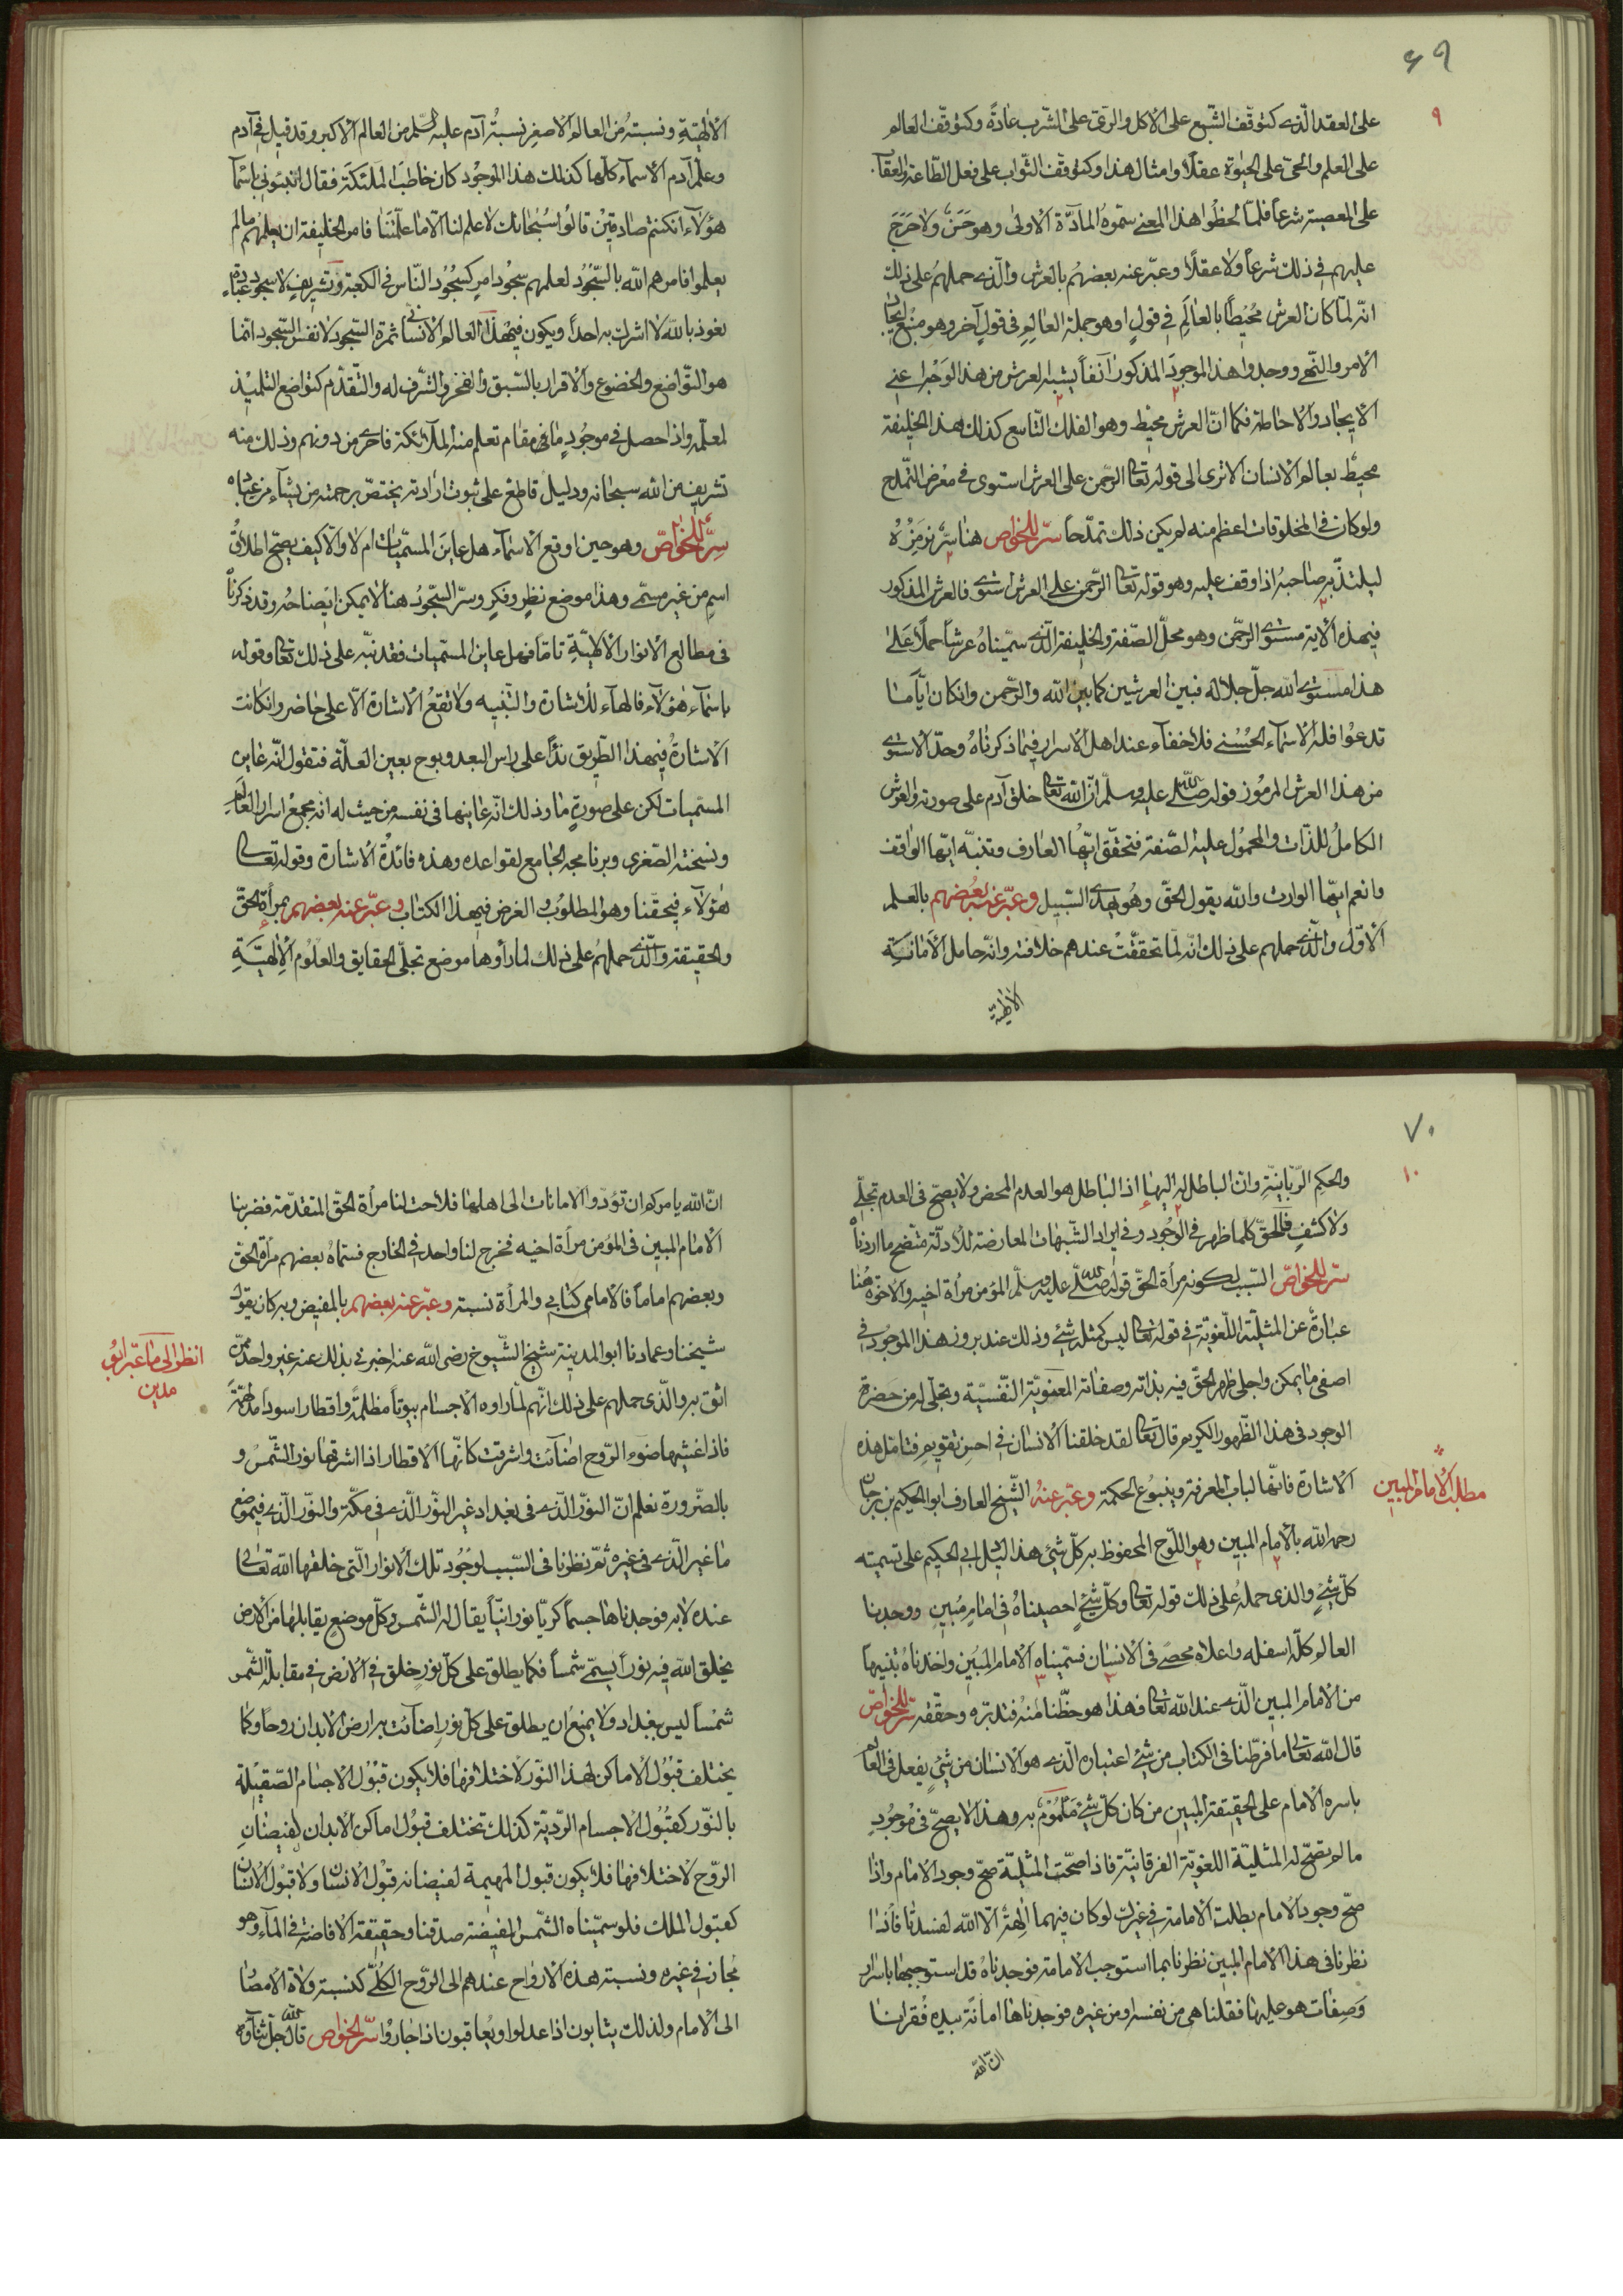 ٦٩
٩
على العقد الّذى كتوقّف الشّبع على الاكل والرّىّ على الشّرب عادةً وكتوقّف العالم
على العلم والحىّ على الحيٰوة عقلاً وامثال هذا وكتوقّف الثّواب على فعل الطّاعة والعقاب
على المعصية شرعاً فلمّا لحظُوا هذا المعنى سمّوهُ المادّة الاولى وهو حَسَنٌ ولا حَرَجَ
عليهم فى ذلك شرعاً ولا عقلاً وعبّر عنه بعضهُم بالعرش والّذى حملهُم على ذلك
انّه لمّا كان العرش محُيطاً بالعالَمِ فى قولٍ اوهو جملة العالمِ فى قولٍ آخر وهو منبع ايجاد
الامر والنّهى ووجدوا هذا الموجودَ المذكور آنفاً يشبه العرش من هذا الوَجْه اعنى
الايجاد والاحاطة فكما انّ العرش محيط وهو الفلك التّاسع كذلك هذا الخليفة
محيطٌ بعالم الانسان الا ترى الى قوله تعالى الرّحمن على العرش استوى فى معْرَض التّمدّح
ولو كان فى المخلوقات اعظم منه لم يكن ذلك تمدّحاً سرّ للخواصّ هنا سرّ نرمزُهُ
ليلتذّ به صاحبُهُ اذا وقف عليه وهو قوله تعالى الرّحمن على العرش استوى فالعرش المذكور
فى هذه الآية مستوى الرّحمن وهو محلّ الصّفة والخليفة الّذى سمّيناهُ عرشاً حملاً عَلىٰ
هذا مستوى الله جلّ جلاله فبين العرشين كما بين الله والرّحمن وان كان ايّاً مٰا
تدعوُا فله الاسماء الحُسْنى فلا خفآء عند اهل الاسرار فيما ذكرناهُ وحدّ الاستوى
من هذا العرش المرمُوز قوله صلّى الله عليه وسلّم انّ الله تعالى خلق آدم على صورته والعرش
الكاملُ للذّات والمحمُول عليه الصّفة فتحقّق ايّها العارف وتنبّه ايّها الواقف
وانعم ايّها الوارث والله يقول الحقّ وهُو يهدى السّبيل وعبّر عنه بعُضهم بالعلم
الاوّل والّذى حملهم على ذلك انّه لمّا تحقّقتْ عندهم خلافته وانّه حامل الأمانة
الالهيّة
الالٰهيّةِ ونسبتهُ من العالم الاصغر نسبةُ آدم عليه السّلم من العالم الاكبر وقد قيل فى آدم
وعلّم آدم الاسمآء كلّها كذلك هذا الموجُود كان خاطبَ الملٰئكة فقال انبئونى باسمآء
هؤلآء ان كنتم صادقينَ قالوُا سُبْحانك لا علم لنا الّا ما علّمتنا فامر الخليفة ان يعلمهُم مالم
يعلموا فامرهم الله بالسُّجُود لمعلمهم سجُود امرٍ كسجُود النّاس فى الكعبة وتشريفٍ لا سجود عبادة
نعوذ بالله لا اشرك به احداً ويكون فى هذا العالم الانسانى ثمرة السّجود لا نفس السّجود انّما
هو التّواضع والخضوع والاقرار بالسّبق والفخر والشّرف له والتّقدّم كتواضع التلميذ
لمعلّمه واذا حصل فى موجُودٍ ما فى مقام تعلم منه الملآئكة فاحرى من دونهم وذلك منه
تشريف من الله سبحانه ودليل قاطع على ثبوت ارادته يختصّ برحمته من يشآء من عباده
سِرٌّ للخَواصّ وهو حين اوقع الاسمآء هل عاينَ المسمّيات ام لا والّا كيف يصحّ اطلاقُ
اسمٍ من غير مسمّى وهذا موضع نظرٍ وفكرٍ وسرّ السّجُود هنا لا يمكن ايضاحهُ وقد ذكرناهُ
فى مطالع الانوار الالٰهيّةِ تاماً فهل عاين المسمّيات فقد نبّه على ذلك تعالى وقوله
باسمآء هٰؤلآء فالهآء للاشارة والتّنبيه ولا تقعُ الاشارة الّا على حاضر وان كانت
الاشارةُ فى هذا الطّريق ندآءً على راس البعد وبوح بعين العلّة فنقول انّه عاين
المسمّيات لكن على صورةٍ ما وذلك انّه عاينها فى نفسه من حيث له انّه مجمع اسرار العالَمِ
ونسخته الصّغرى وبرنامجه الجامع لقواعده وهذه فائدةُ الاشارة وقوله تعالى
هٰؤلآء فى حقّنا وهو المطلوُب والغرض فى هذا الكتاب وعبّر عنه بعضهم بمرأة الحقّ
والحقيقة والّذى حملهُم على ذلك لمّا رأوها موضع تجلّى الحقايق والعلُوم الالٰهيّةِ
٧٠
١٠
والحكم الرّبّانيّة وانّ الباطل لا له اليها اذ الباطل هو العدم المحض ولا يصحّ فى العدم تجلّى
ولا كشفٍ فالحقّ كلّما ظهر فى الوجُود وفى ايراد الشّبهات المعارضة للادلّة متّضح ما اردناه
سرّ للخواصّ السّبب لكونه مرأة الحقّ قوله صلّى الله عليه وسلّم المؤمن مرأة اخيه والاخوّة هُنا
عبارةٌ عن المثليّة اللّغويّة فى قوله تعالى ليس كمثله شئ وذلك عند بروز هذا الموجُود فى
اصفى ما يمكن واجلى ظهر الحقّ فيه بذاته وصفاته المعنويّة النّفسيّة وتجلّى له من حَضرة
الوجود فى هذا الظّهور الكريم قال تعالى لقد خلقنا الانسان فى احسن تقويمٍ فتامّل هذه
الاشارة فانّها لباب المعرفة وينبوُع الحكمة وعبّر عنهُ الشّيخ العارف ابو الحكيم بن برجان
رحمه الله بالامام المبين وهو اللّوح المحفوظ به كلّ شئٍ هذا الى الحكيم على تسميته
كلّ شئٍ والذى حملهُ على ذلك قوله تعالى وكلّ شئٍ احصيناهُ فى امامٍ مُبينٍ ووجدنا
العالم كلّه اسفله واعلاه محصىً فى الانسان فسمّيناه الامام المُبين واخذناهُ تنبيهاً
من الامام المبين الّذى عند الله تعالى فهذا هو حظّنا منْهُ فتدبّره وحقّقه سرّ للخواصّ
قال الله تعالى ما فرّطنا فى الكتاب من شئٍ اعتباره الّذى هو الانسان من شئٍ يفعل فى العالم
باسره الامام على الحقيقة المبين من كان كلّ شئٍ مَأمُومٌ به وهذا لا يصحّ فى موْجُودٍ
مالم تصحّ له المثليّة اللغويّة الفرقانيّة فاذا صحّت المثليّة صحّ وجود الامام واذا
صحّ وجود الامام بطلت الامامة فى غيره لو كان فيهما الٰهة الّا الله لفسدتا فاذا
نظرنا فى هذا الامام المبين نظرنا بما استوجب الامامة فوجدناهُ قد استوجبها باسرارٍ
وَصِفات هو عليها فقلنا هى من نفسه او من غيره فوجدناها امانة بيده فقرانا
انّ الله
مطلب الامام المبين
انّ الله يامركم ان تؤدّوا الامانات الى اهلها فلاحت لنا مرأة الحقّ المتقدّمة فضربنا
الامام المبين فى المؤمن مرأة اخيه فخرج لنا واحد فى الخارج فسمّاهُ بعضهم مرأة الحقّ
وبعضهم اماماً فالامامى كتابى والمرأة نسبته وعبّر عنه بعضهم بالمفيض وبه كان يقول
شيخنا وعمادنا ابو المدينة شيخ الشّيوخ رضى الله عنه اخبرنى بذلك عنه غير واحد ممّن
اثق به والّذى حملهم على ذلك انّهم لمّا راوه الاجسام بيوتاً مظلمةً واقطاراً سوداً مدلهمّةً
فاذا غشيها ضوء الرّوح اضآئت واشرقت كانّها الاقطار اذا اشرقها نور الشّمسُ و
بالضّرورة نعلم انّ النّور الّذى فى بغداد غير النّور الّذى فى مكّة والنّور الّذى فى موضع
ما غير الّذى فى غيره ثمّ نظرنا فى السّبب لوجُود تلك الانوار الّتى خلقها الله تعالى
عنده لا به فوجدناها جسماً كريّاً نورانيّاً يقال له الشّمس وكلّ موضعٍ يقابلها من الارض
يخلق الله فيه نوراً يسمّى شمساً فكما يطلق على كلّ نورٍ خلق فى الارض فى مقابلة الشّمس
شمْساً ليس ببغداد ولا يمنعُ ان يطلق على كلّ نورٍ اضآئت به ارض الابدان روحاً وكما
يختلف قبوُل الاماكن لهذا النّور لاختلافها فلا يكون قبوُل الاجسام الصّقيلة
بالنّور كقبُول الاجسام الرّديّة كذلك تختلف قبوُل اماكن الابدان لفيضانِ
الرّوح لاختلافها فلا يكون قبول البهيمة لفيضانه قبوُل الانسان ولا قبوُل الانسان
كقبول الملك فلو سمّيناه الشّمس المفيضة صدقنا وحقيقة الافاضة فى المآء وهو
مُجاز فى غيره ونسبته هذه الارواح عندهم الى الرّوح الكُلّى كنسبة ولاة الامصار
الى الامام ولذلك يثابون اذا عدلوا ويُعاقبون اذا جاروُا سرّ الخواص قال الله جلّ ثنآؤه
انظر الى ما عبّر ابو
مدين